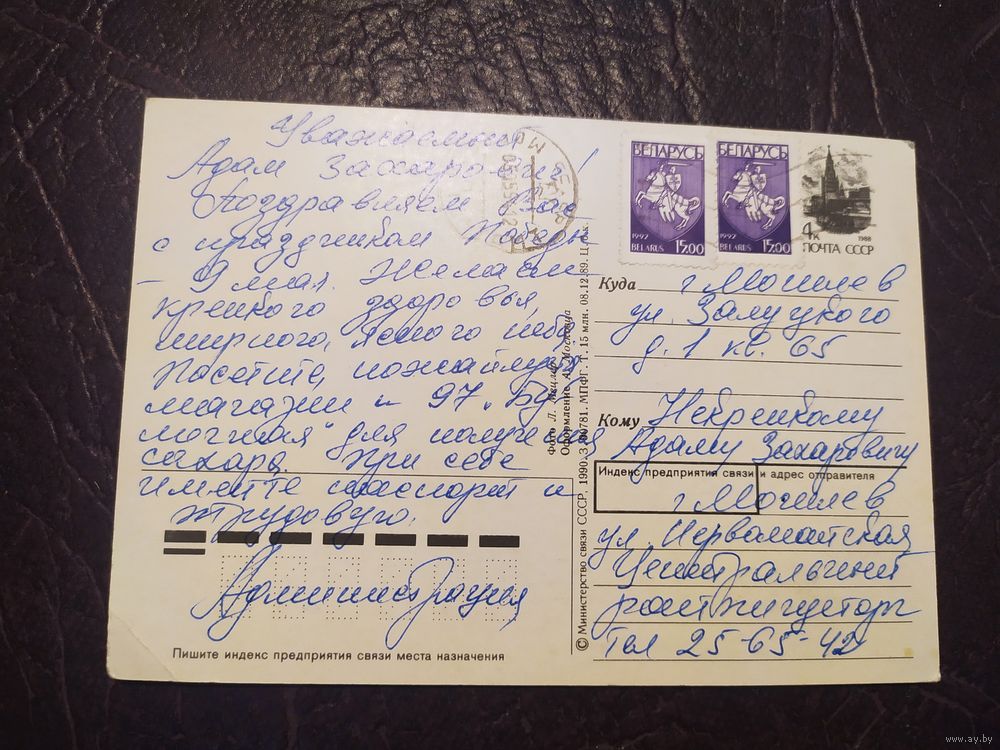 Уважаемый
Адам Захарович!
Поздравляем Вас
с праздником Победы
– 9 мая. Желаем
крепкого здоровья,
мирного, ясного неба.
Посетите, пожалуйста
магазин н 97 „Бу
лочная" для получения
сахара. При себе
имейте паспорт и
трудовую.
Администрация
Пишите индекс предприятия связи места назначения
Фото Л.
Оформление А.
© Министерство связи СССР, 1990. З. МПФГ. Т. 15 млн. 08.12.89. Ц.
БЕЛАРУСЬ
1992
BELARUS 15.00
БЕЛАРУСЬ
1992
BELARUS 15.00
4к
1988
ПОЧТА СССР
Куда г Могилев
ул. Залуцкого
д. 1 кв. 65
Кому Небрецкому
Адаму Захаровичу
Индекс предприятия связи и адрес отправителя
г Могилев
ул. Первомайская
Центральный
тел 25-65-42
www.ay.by